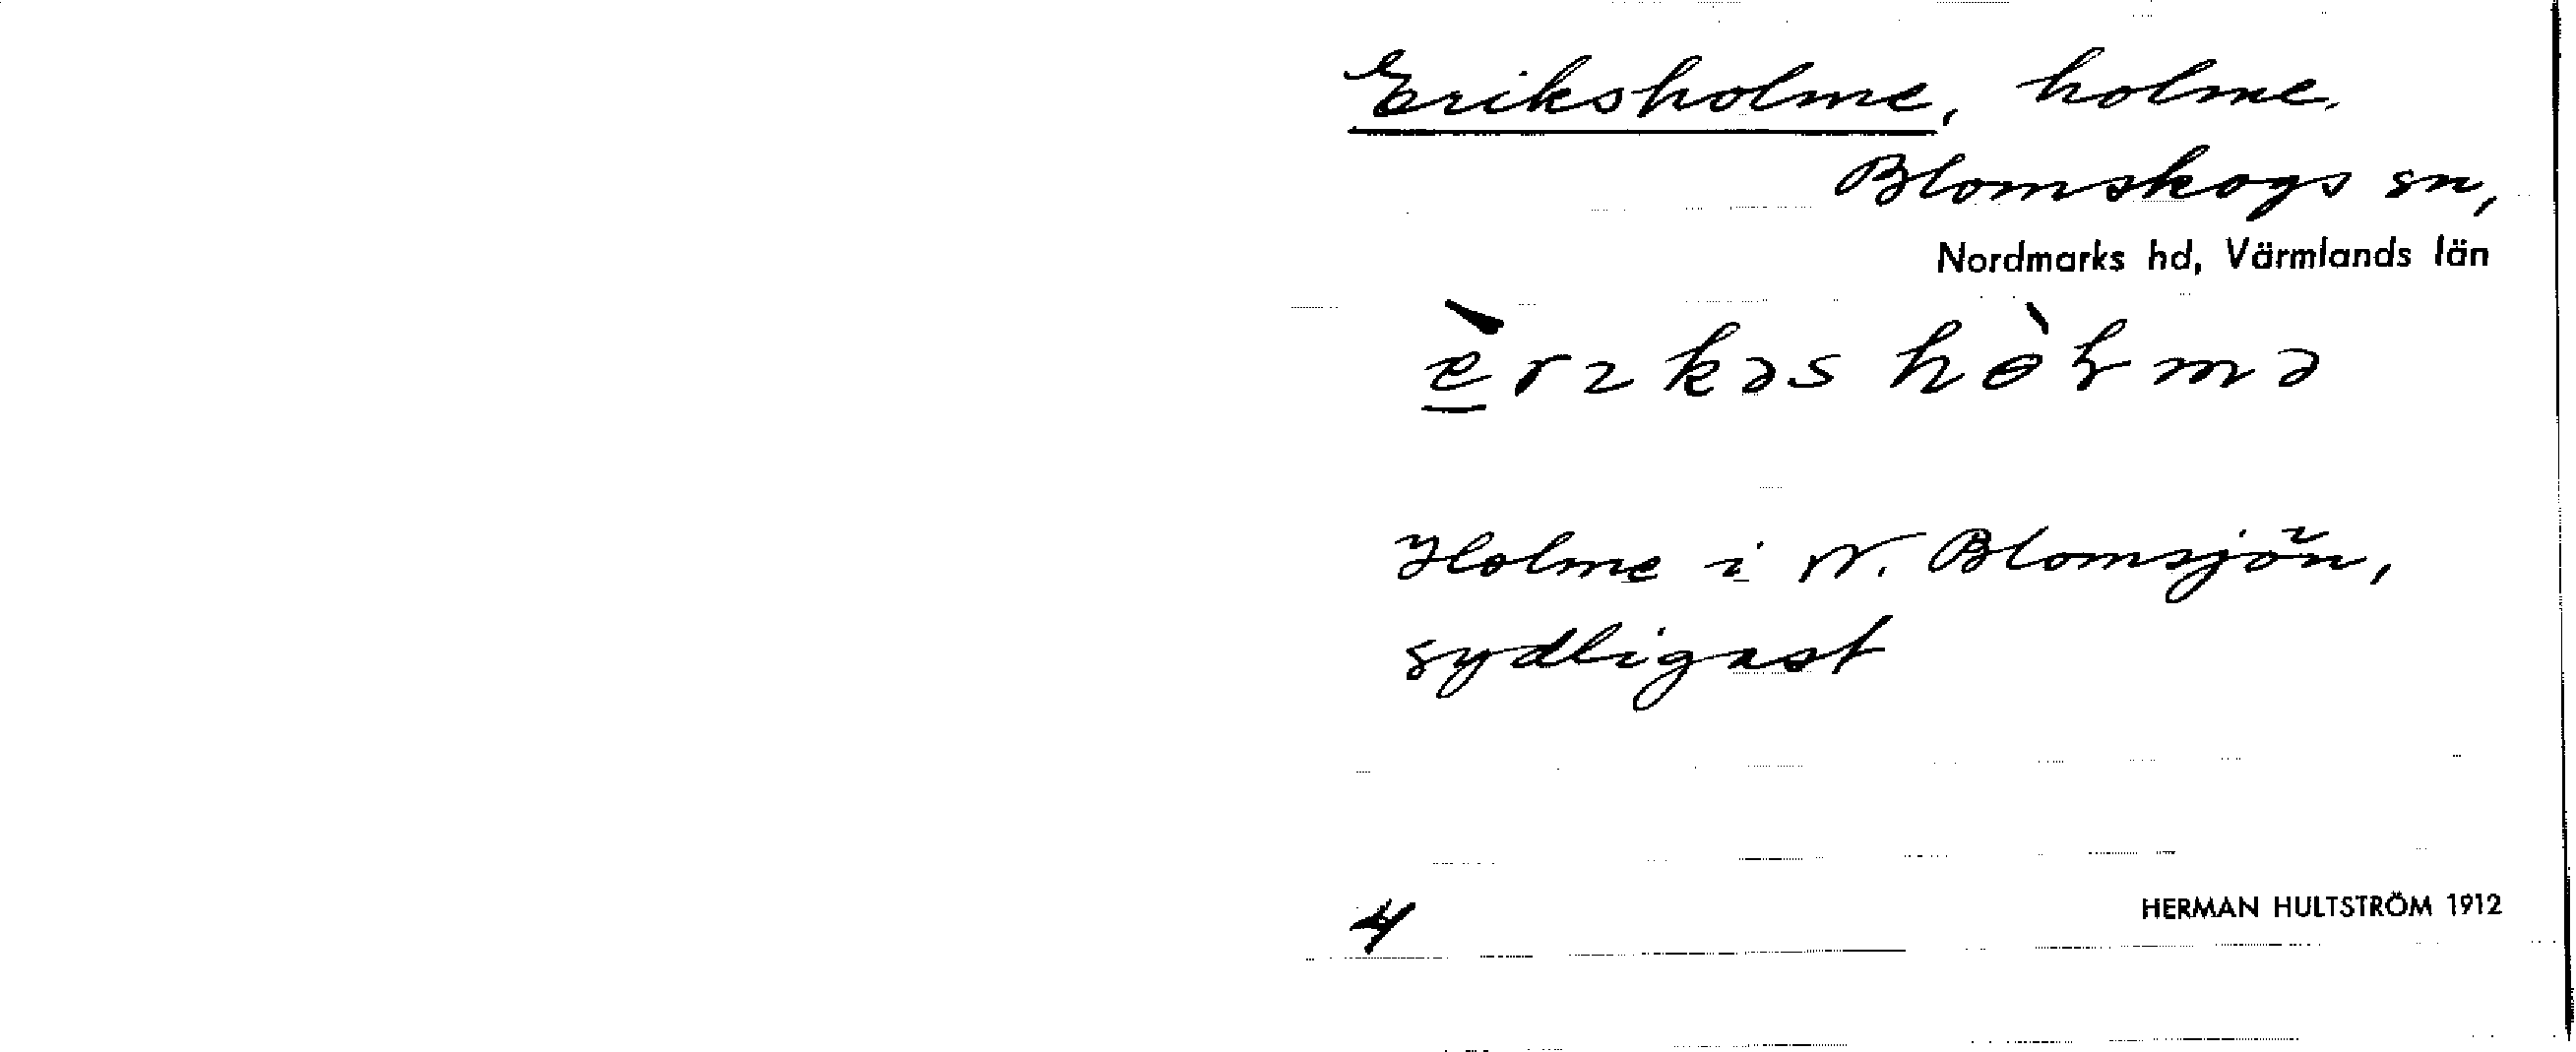 Eriksholme, holme.
Blomskogs sn,
Nordmarks hd, Värmlands län
è̱rɩkəs hɵ̀ɫmə
Holme i N. Blomsjön,
sydligast
4
HERMAN HULTSTRÖM 1912